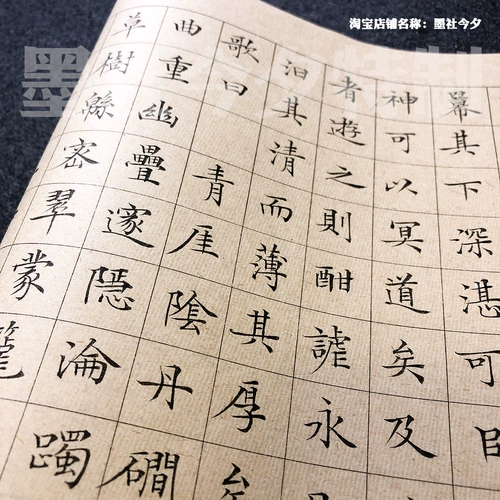 淘宝店铺名称：墨社今夕
冪其下深湛可
神可以冥道矣及
者遊之則酣謔永
汩其清而薄其厚矣
歌曰
青厓陰丹磵
曲重幽疊邃隱淪躅
草樹緜密翠蒙籠